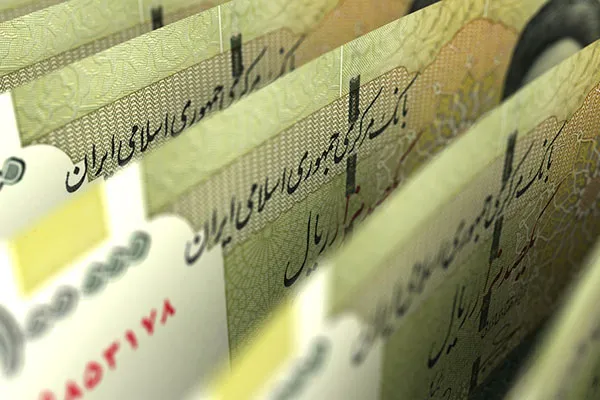 بانک مرکزی جمهوری اسلامی ایران
بانک مرکزی جمهوری اسلامی ایران
یکصد هزار ریال
۸۵۳۱۷۸
بانک مرکزی جمهوری اسلامی ایران
یکصد هزار ریال